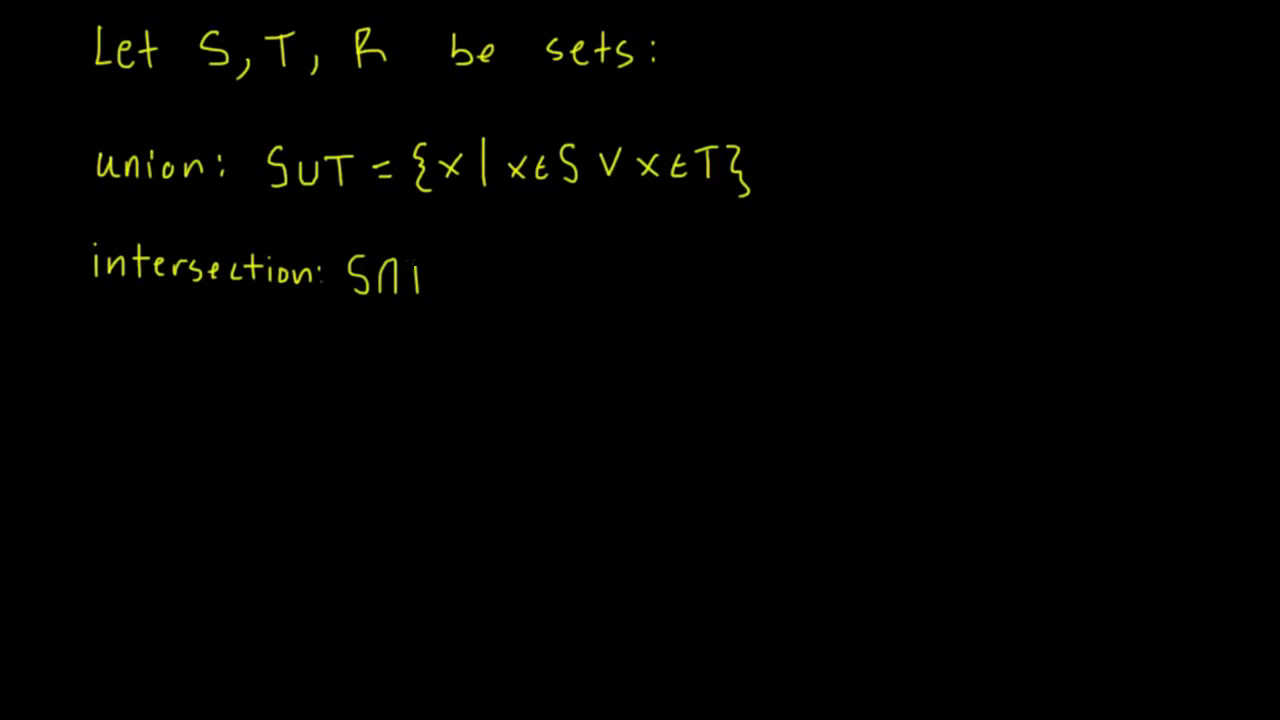 Let S, T, R be sets:
union: S∪T = {x | x∈S ∨ x∈T}
intersection: S∩